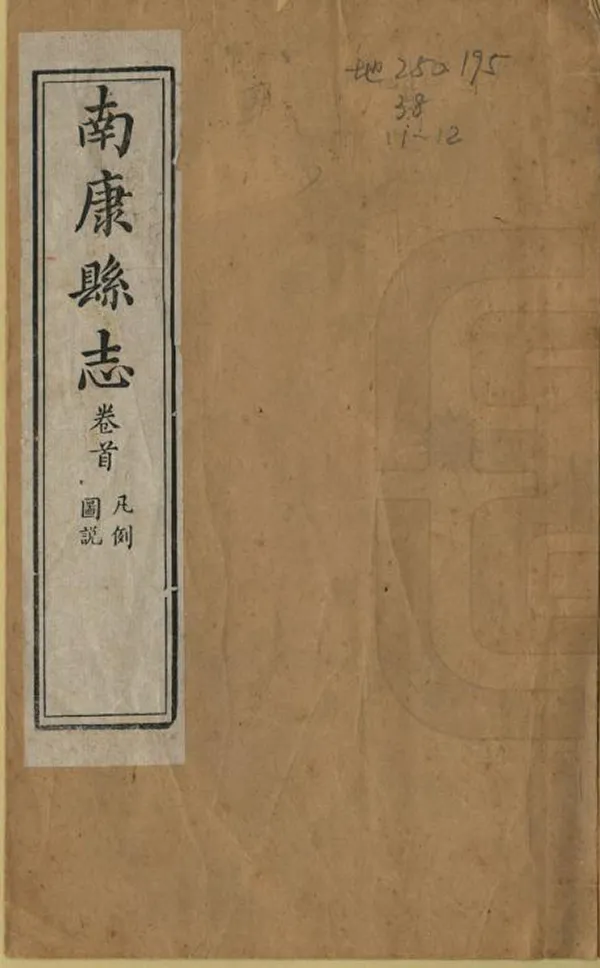 南康縣志
卷首
凡例
圖説
地 250.195
38
11~12